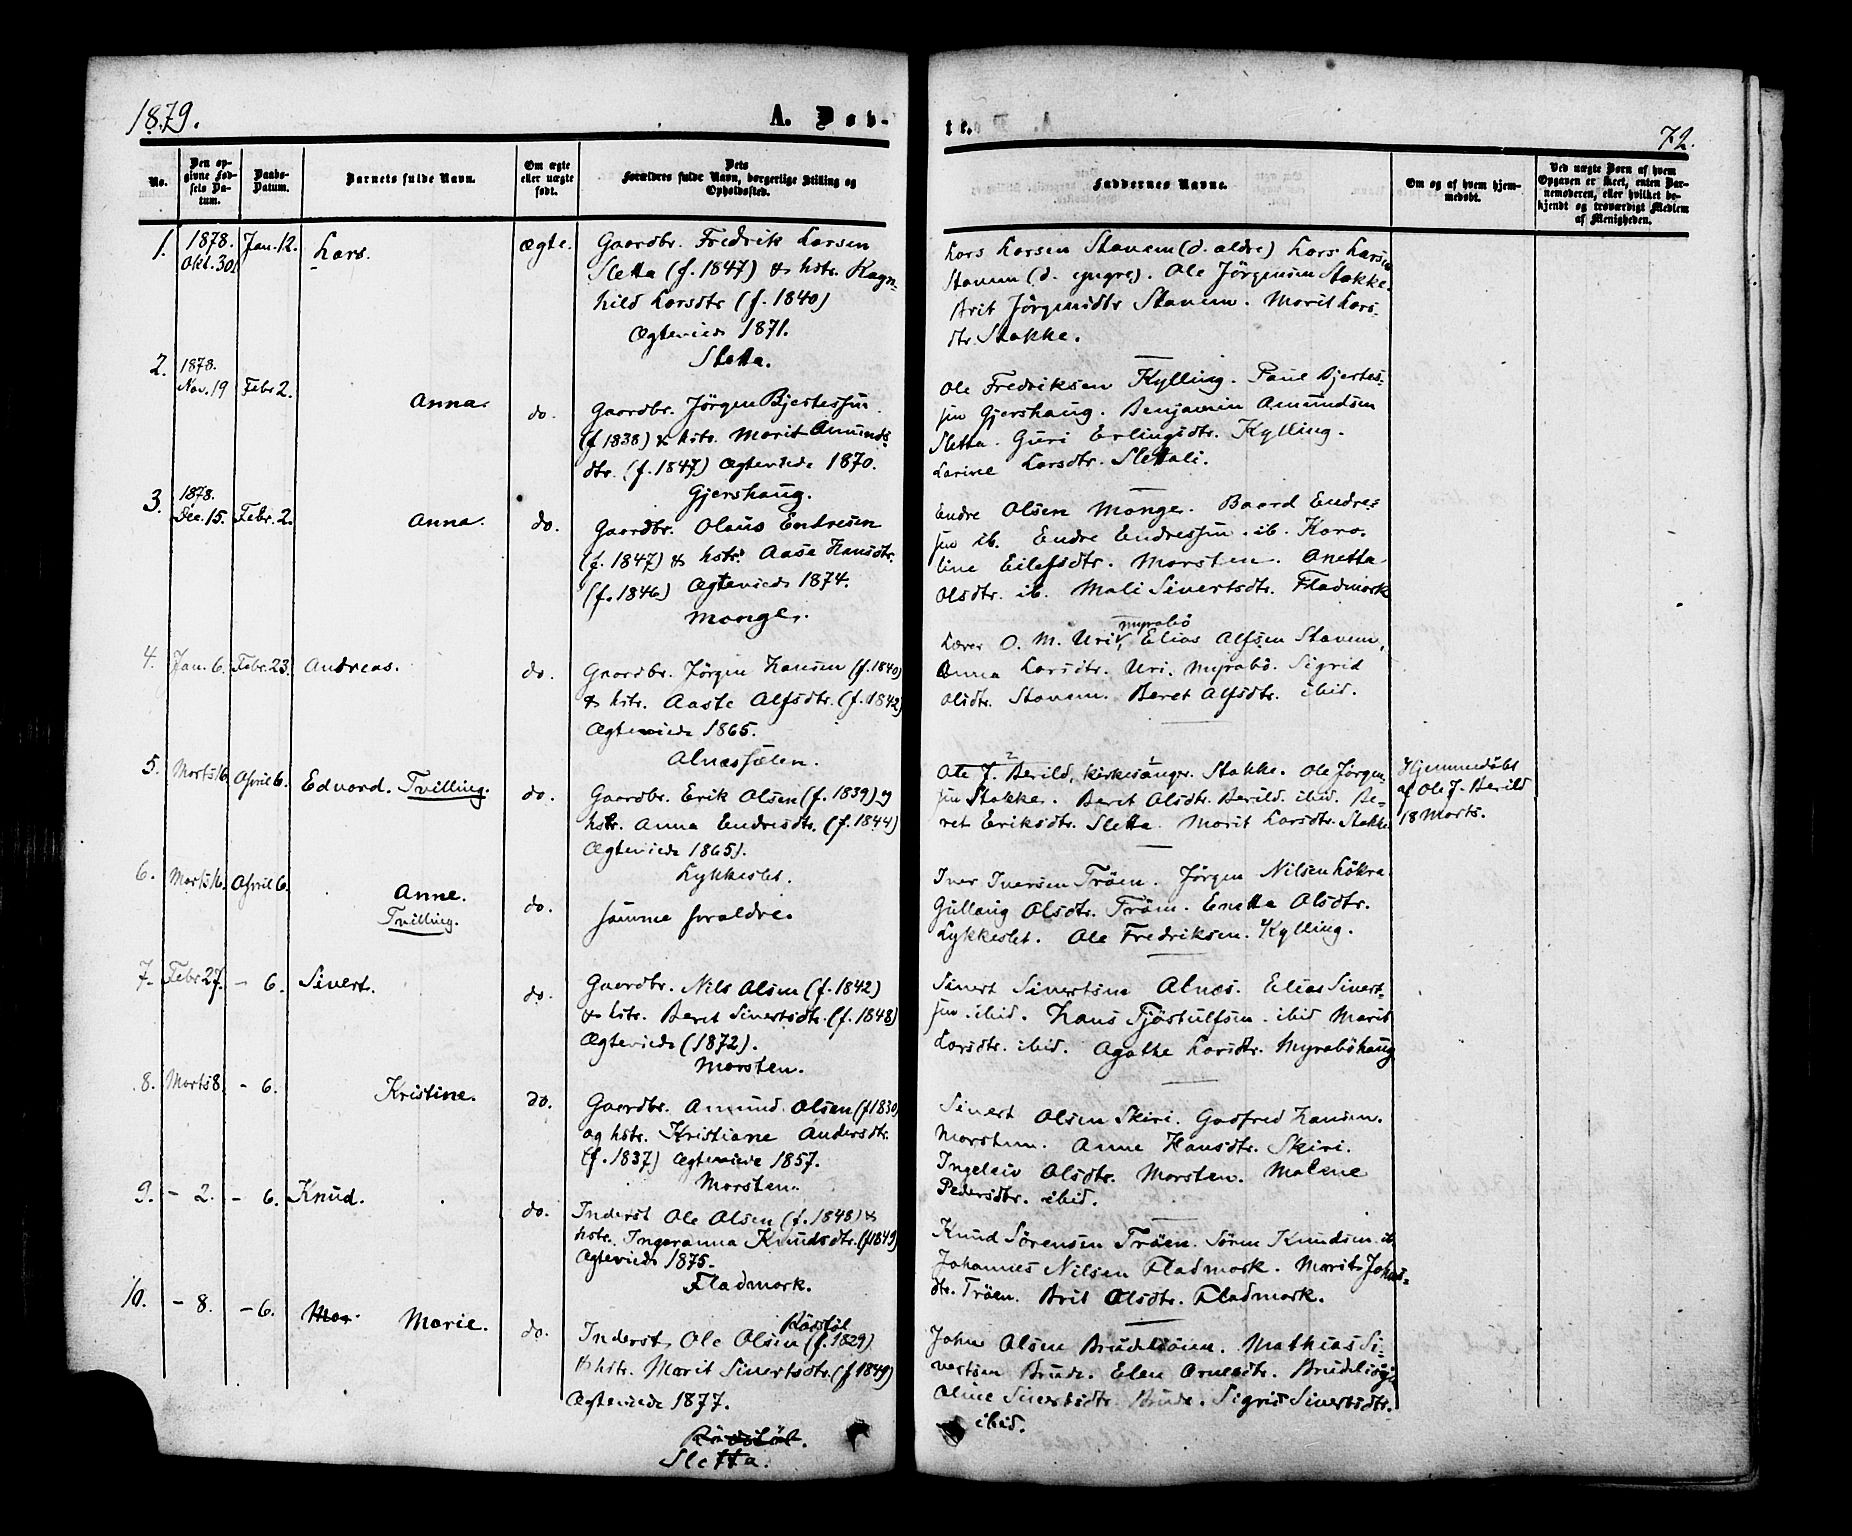 1879.
A. Døb-
te.
72.
No.
Den op-
givne Fød-
sels Da-
tum.
Daabs-
Datum.
Barnets fulde Navn.
Om ægte
eller uægte
født.
Dets
Forældres fulde Navn, borgerlige Stilling og
Opholdssted.
Faddernes Navne.
Om og af hvem hjem-
medøbt.
Ved uægte Børn af hvem
Opgaven er skeet, enten Bar-
nemoderen, eller hvilket be-
kjendt og troværdigt Medlem
af Menigheden.
1. 1878. Okt. 30. Jan. 12. Lars. Ægte.
Gaardbr. Fredrik Larsen
Sletta (f. 1847) & hstr. Ragn-
hild Larsdtr (f. 1840)
Ægteviede 1871.
Sletta.
Lars Larsen Stavem (d. ældre) Lars Larsen
Stavem (d. yngre). Ole Jörgensen Stakke.
Brit Jörgensdtr Stavem. Marit Lars-
dtr. Stakke.
2. 1878. Nov. 19 Febr 2. Anna. do.
Gaardbr. Jörgen Bjertessen
(f. 1838) & hstr. Marit Amunds-
dtr. (f. 1847) Ægteviede 1870.
Gjershaug.
Ole Fredriksen Kylling. Paul Bjertes-
sen Gjershaug. Benjamin Amundsen
Sletta. Guri Erlingsdtr. Kylling.
Larine Larsdtr. Slettali.
3. 1878. Dec. 15. Febr. 2. Anna. do.
Gaardbr. Olaus Endresen
(f. 1847) & hstr. Aase Hansdtr.
(f. 1846) Ægteviede 1874.
Monge.
Endre Olsen Monge. Baard Endre-
sen ib. Endre Endressen. ib. Karo-
line Eilefsdtr. Marsten. Anetta
Olsdtr. ib. Mali Sivertsdtr. Fladmark
4. Jan. 6. Febr. 23. Andreas. do.
Gaardbr. Jörgen Hansen (f. 1840)
& hstr. Aaste Alfsdtr. (f. 1842)
Ægteviede 1865.
Alnæssælen.
Myrabö
Lærer O. M. Uri, Elias Alfsen Stavem,
Anna Larsdtr. Uri. Myrabö. Sigrid
Olsdtr. Stavem. Beret Alfsdtr. ibid.
5. Marts 16. April 6. Edvard. Tvilling. do.
Gaardbr. Erik Olsen (f. 1839) og
hstr. Anna Endresdtr. (f. 1844)
Ægteviede 1865).
Lykkeslet.
Ole J. Berild, kirkesanger. Stakke. Ole Jörgen-
sen Stakke. Beret Olsdtr. Berild. ibid. Be-
ret Eriksdtr. Sletta. Marit Larsdtr. Stakke
Hjemmedöbt
af Ole J. Berild
18 Marts.
6. Marts 16. April 6. Anne. Tvilling. do.
samme forældre.
Iver Iversen Tröen. Jörgen Nilsen Lökra.
Gullaug Olsdtr. Tröen. Enetta Olsdtr.
Lykkeslet. Ole Fredriksen. Kylling.
7. Febr 27. - 6. Sivert. do.
Gaardbr. Nils Olsen (f. 1842)
& hstr. Beret Sivertsdtr. (f. 1848)
Ægteviede (1872).
Marsten.
Sivert Sivertsen Alnæs. Elias Sivert-
sen. ibid. Hans Tjöstulfsen. ibid Marit
Larsdtr. ibid. Agathe Larsdtr. Myraböhaug
8. Marts 8. - 6. Kristine. do.
Gaardbr. Amund Olsen (f 1830)
og hstr. Kristiane Andersdtr.
(f. 1837) Ægteviede 1857.
Marsten.
Sivert Olsen Skiri. Gadfred Hansen.
Marsten. Anne Hansdtr. Skiri.
Ingeleiv Olsdtr. Marsten. Malene
Pedersdtr. ibid.
9. - 2. - 6. Knud. do.
Inderst Ole Olsen (f. 1848) &
hstr. Ingeranna Knudsdtr. (f 1849)
Ægteviede 1875.
Fladmark.
Knud Sörensen Tröen. Sören Knudsen. ib.
Johannes Nilsen Fladmark. Marit Johns-
dtr. Tröen. Brit Olsdtr. Fladmark.
10. - 8. - 6. Mar Marie. do.
Inderst. Ole Olsen (f. 1829)
& hstr. Marit Sivertsdtr. (f 1849)
Ægteviede 1877.
Sletta.
John Olsen Brudeldöien. Mathias Si-
vertsen Brude. Elen Arnesdtr.
Oline Sivertsdtr. Brude. Sigrid Sivertsdtr.
ibid.